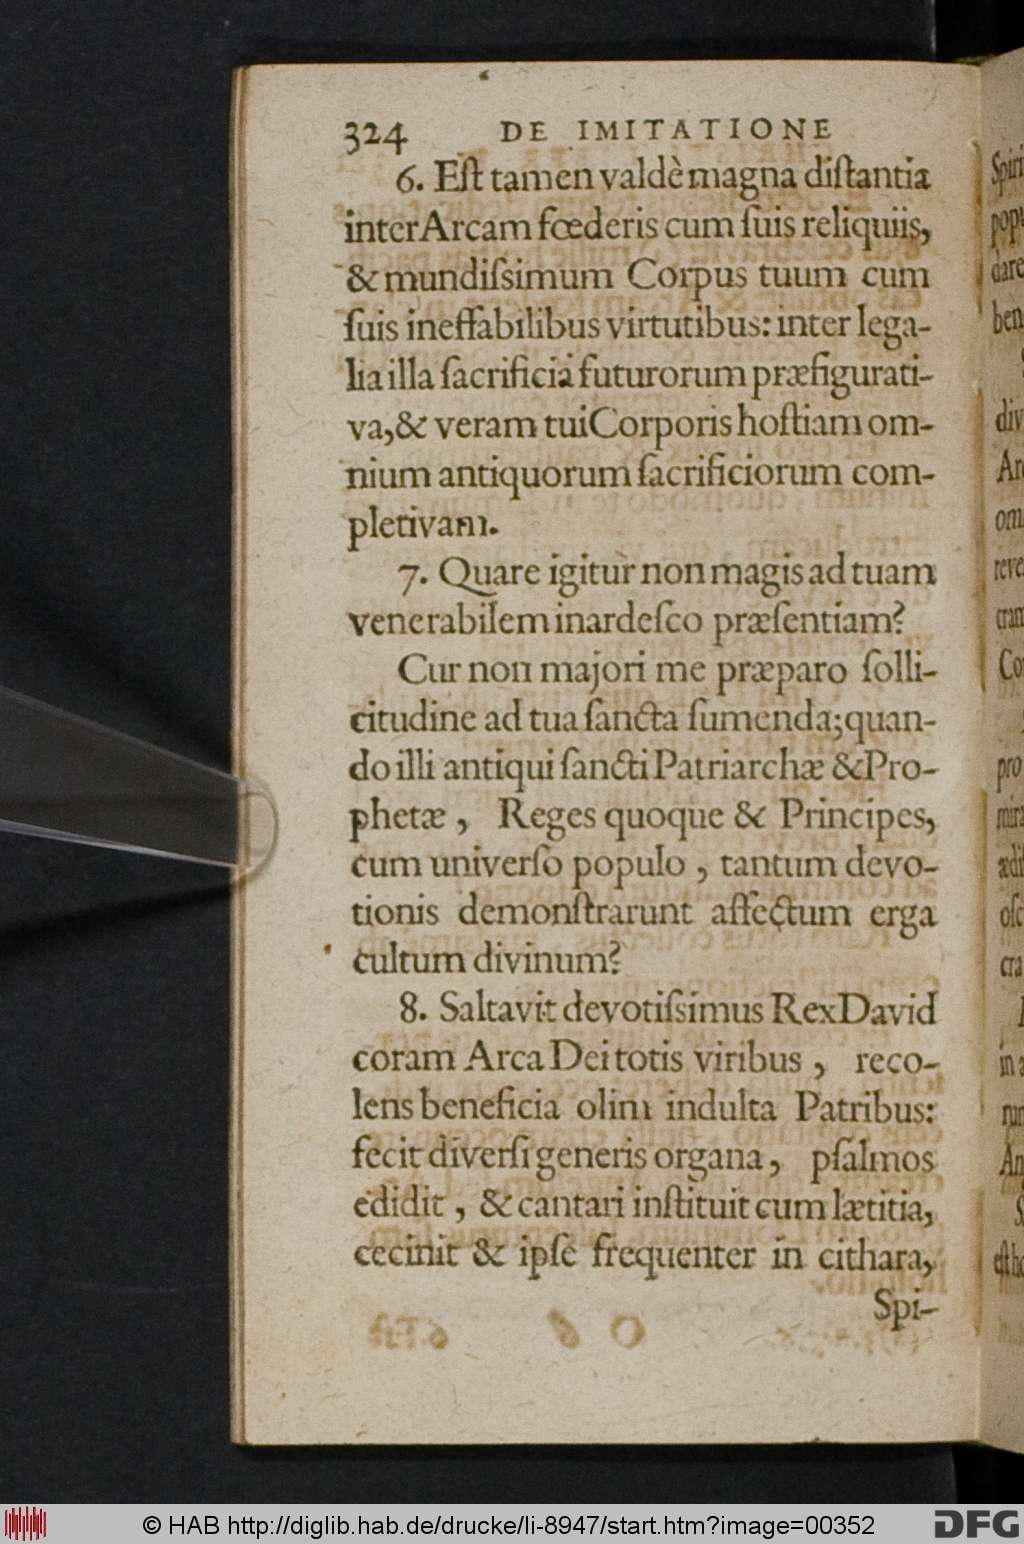 324 DE IMITATIONE
6. Eſt tamen valdè magna diſtantia
inter Arcam fœderis cum ſuis reliquiis,
& mundiſsimum Corpus tuum cum
ſuis ineffabilibus virtutibus: inter lega-
lia illa ſacrificia futurorum præfigurati-
va, & veram tui Corporis hoſtiam om-
nium antiquorum ſacrificiorum com-
pletivam.
7. Quare igitur non magis ad tuam
venerabilem inardeſco præſentiam?
Cur non majori me præparo ſolli-
citudine ad tua ſancta ſumenda; quan-
do illi antiqui ſancti Patriarchæ & Pro-
phetæ, Reges quoque & Principes,
cum univerſo populo, tantum devo-
tionis demonſtrarunt affectum erga
cultum divinum?
8. Saltavit devotiſsimus Rex David
coram Arca Dei totis viribus, reco-
lens beneficia olim indulta Patribus:
fecit diverſi generis organa, pſalmos
edidit, & cantari inſtituit cum lætitia,
cecinit & ipſe frequenter in cithara,
Spi-
© HAB http://diglib.hab.de/drucke/li-8947/start.htm?image=00352
DFG